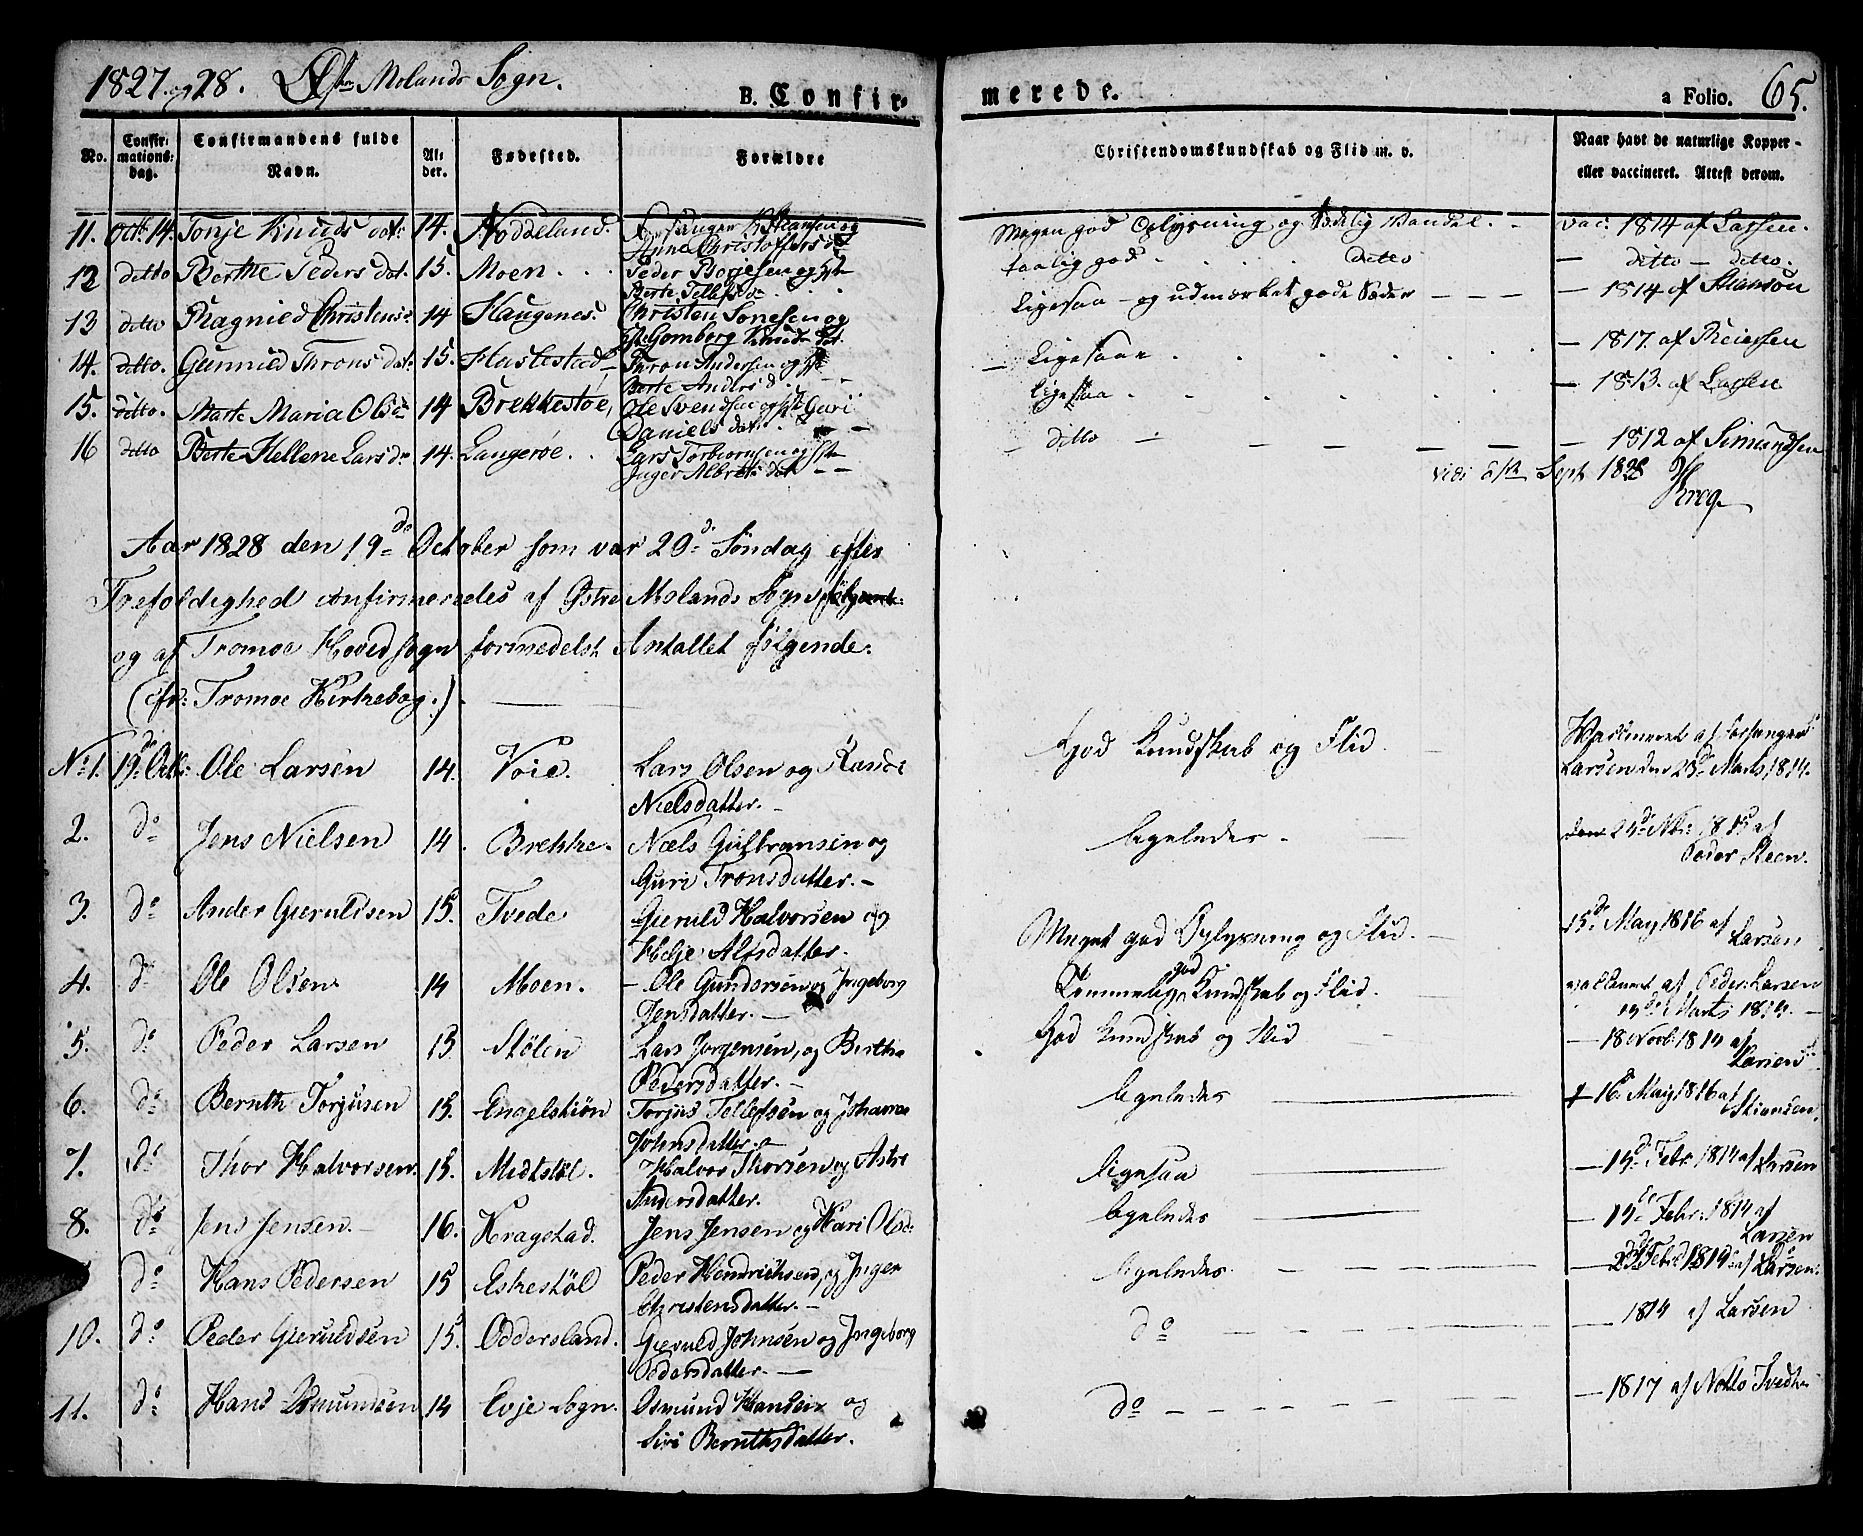 1827 og 28. Østre Molands Sogn.
B. Confirmerede.
a Folio. 65.
No. | Confirmations-dag. | Confirmandens fulde Navn. | Alder. | Fødested. | Forældre | Christendomskundskab og Flid m. v. | Naar havt de naturlige Kopper eller vaccineret. Attest derom.
11. Octb. 14. Tonje Knuds dat: 14. Noddeland. og Anne Christoffers d. Megen god Oplysning og Sædelig Vandel. vac: 1814 af Larsen.
12 ditto Berthe Peders dat. 15. Moen. Peder Borjesen og Berte Tellefsd. taalig god ditto ditto ditto.
13 ditto Ragnied Christens 14 Haugenes. Christen Tonesen og Gomberg Knuds dat. Ligesaa og udmærket gode Sæder 1814 af Stiansøn
14. ditto. Gunnild Throns dat: 15. Hastestad Thron Andersen og Berte Anders d. Ligesaa 1817. af Reiersen
15. ditto. Marte Maria Ols 14 Brekkestøe, Ole Svendsen og Guri Daniels dat. ligesaa 1813. af Larsen
16 ditto Berte Hellene Lars d 14. Langerøe. Lars Torbiørnsen og Inger Albrets dat ditto 1812 af Simundsen
vidi Sept 1828 Krog
Aar 1828 den 19de October som var 20de Søndag efter
Trefoldighed confirmeredes af Østre Molands Sogn
og af Tromøe Hovedsogn formedelst Antallet følgende.
(cfr: Tromøe Kirkebog.)
No 1. 19de Octb: Ole Larsen 14. Voie. Lars Olsen og Randi Nielsdatter. God Kundskab og Flid. Vaccineret af Forsanger Larsen den 23de Marts 1814.
2. do Jens Nielsen 14. Brekke. Niels Gulbransen og Guri Tronsdatter. ligeledes. 24de Nbr: 1815 af Peder Steen.
3. do Ander Gieruldsen 15. Tvede Gieruld Halvorsen og Helje Alfsdatter. Meget god Oplysning og Flid. 15de May 1816 af Larsen
4. do Ole Olsen 14 Moen. Ole Gundersen og Ingeborg Jensdatter. Temmelig god Kundskab og Flid. vaccineret af Peder Larsen Marts 1814.
5. do Peder Larsen 15 Stølen Lars Jorgensen, og Berthe Pedersdatter. God Kundskab og Flid 18 Novb: 1814 af Larsen
6. do Bernth Torjusen 15. Engelstiøn Torjus Tellefsen og Johanne Johnsdatter. ligeledes 16de May 1816 af Stiansen.
7. do Thor Halvorsen 15. Midtstøl. Halvor Thorsen og Astri Andersdatter. ligesaa 15de Febr 1814 af Larsen
8. do Jens Jensen. 16. Kragstad. Jens Jensen og Kari Olsd: ligeledes 15de Febr: 1814 af Larsen
do Hans Pedersen 15 Eskestøl Peder Hendrichsen, og Inger Christensdatter. ligeledes. Febr: 1814 af Larsen
10. do Peder Gieruldsen 15. Oddersland. Gieruld Johnsen og Ingeborg Pedersdatter. do 1814 af Larsen
11. do Hans Osmundsen 14 Evje Sogn. Osmund Hansen og Siri Bernthsdatter. do 1817 af Notto Tvedte